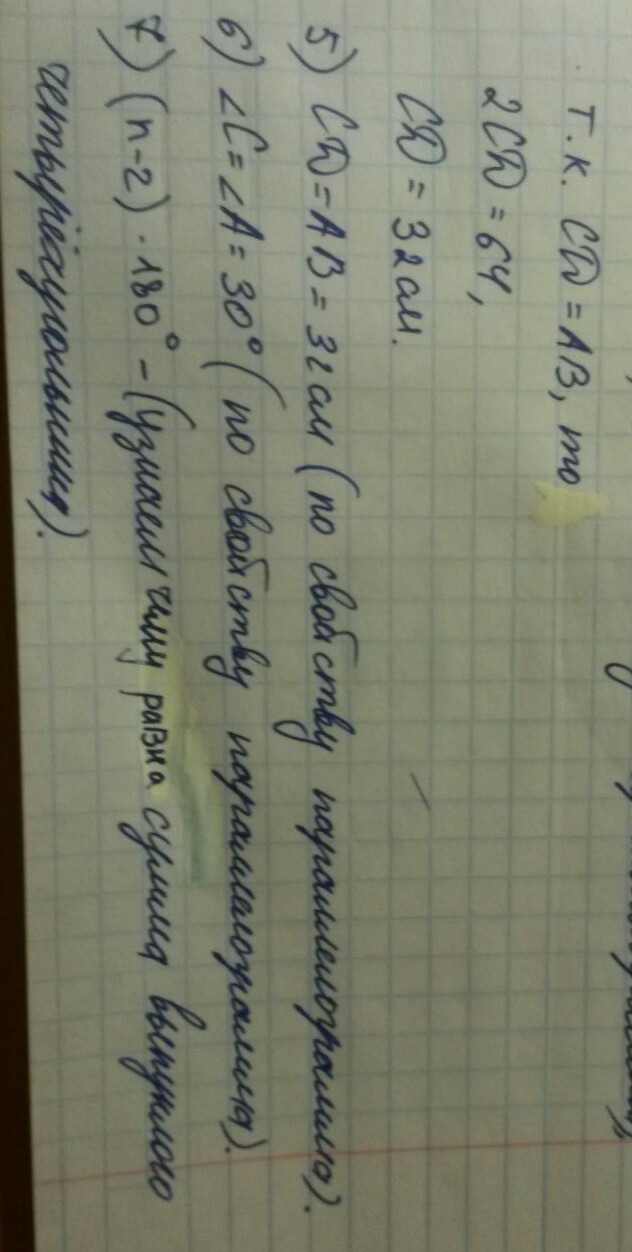 т.к. CD = AB, то
2CD = 64,
CD = 32 см.
5) CD = AB = 32 см (по свойству параллелограмма).
6) ∠C = ∠A = 30° (по свойству параллелограмма).
7) (n-2) · 180° - (узнаем чему равна сумма выпуклого
четырёхугольника).